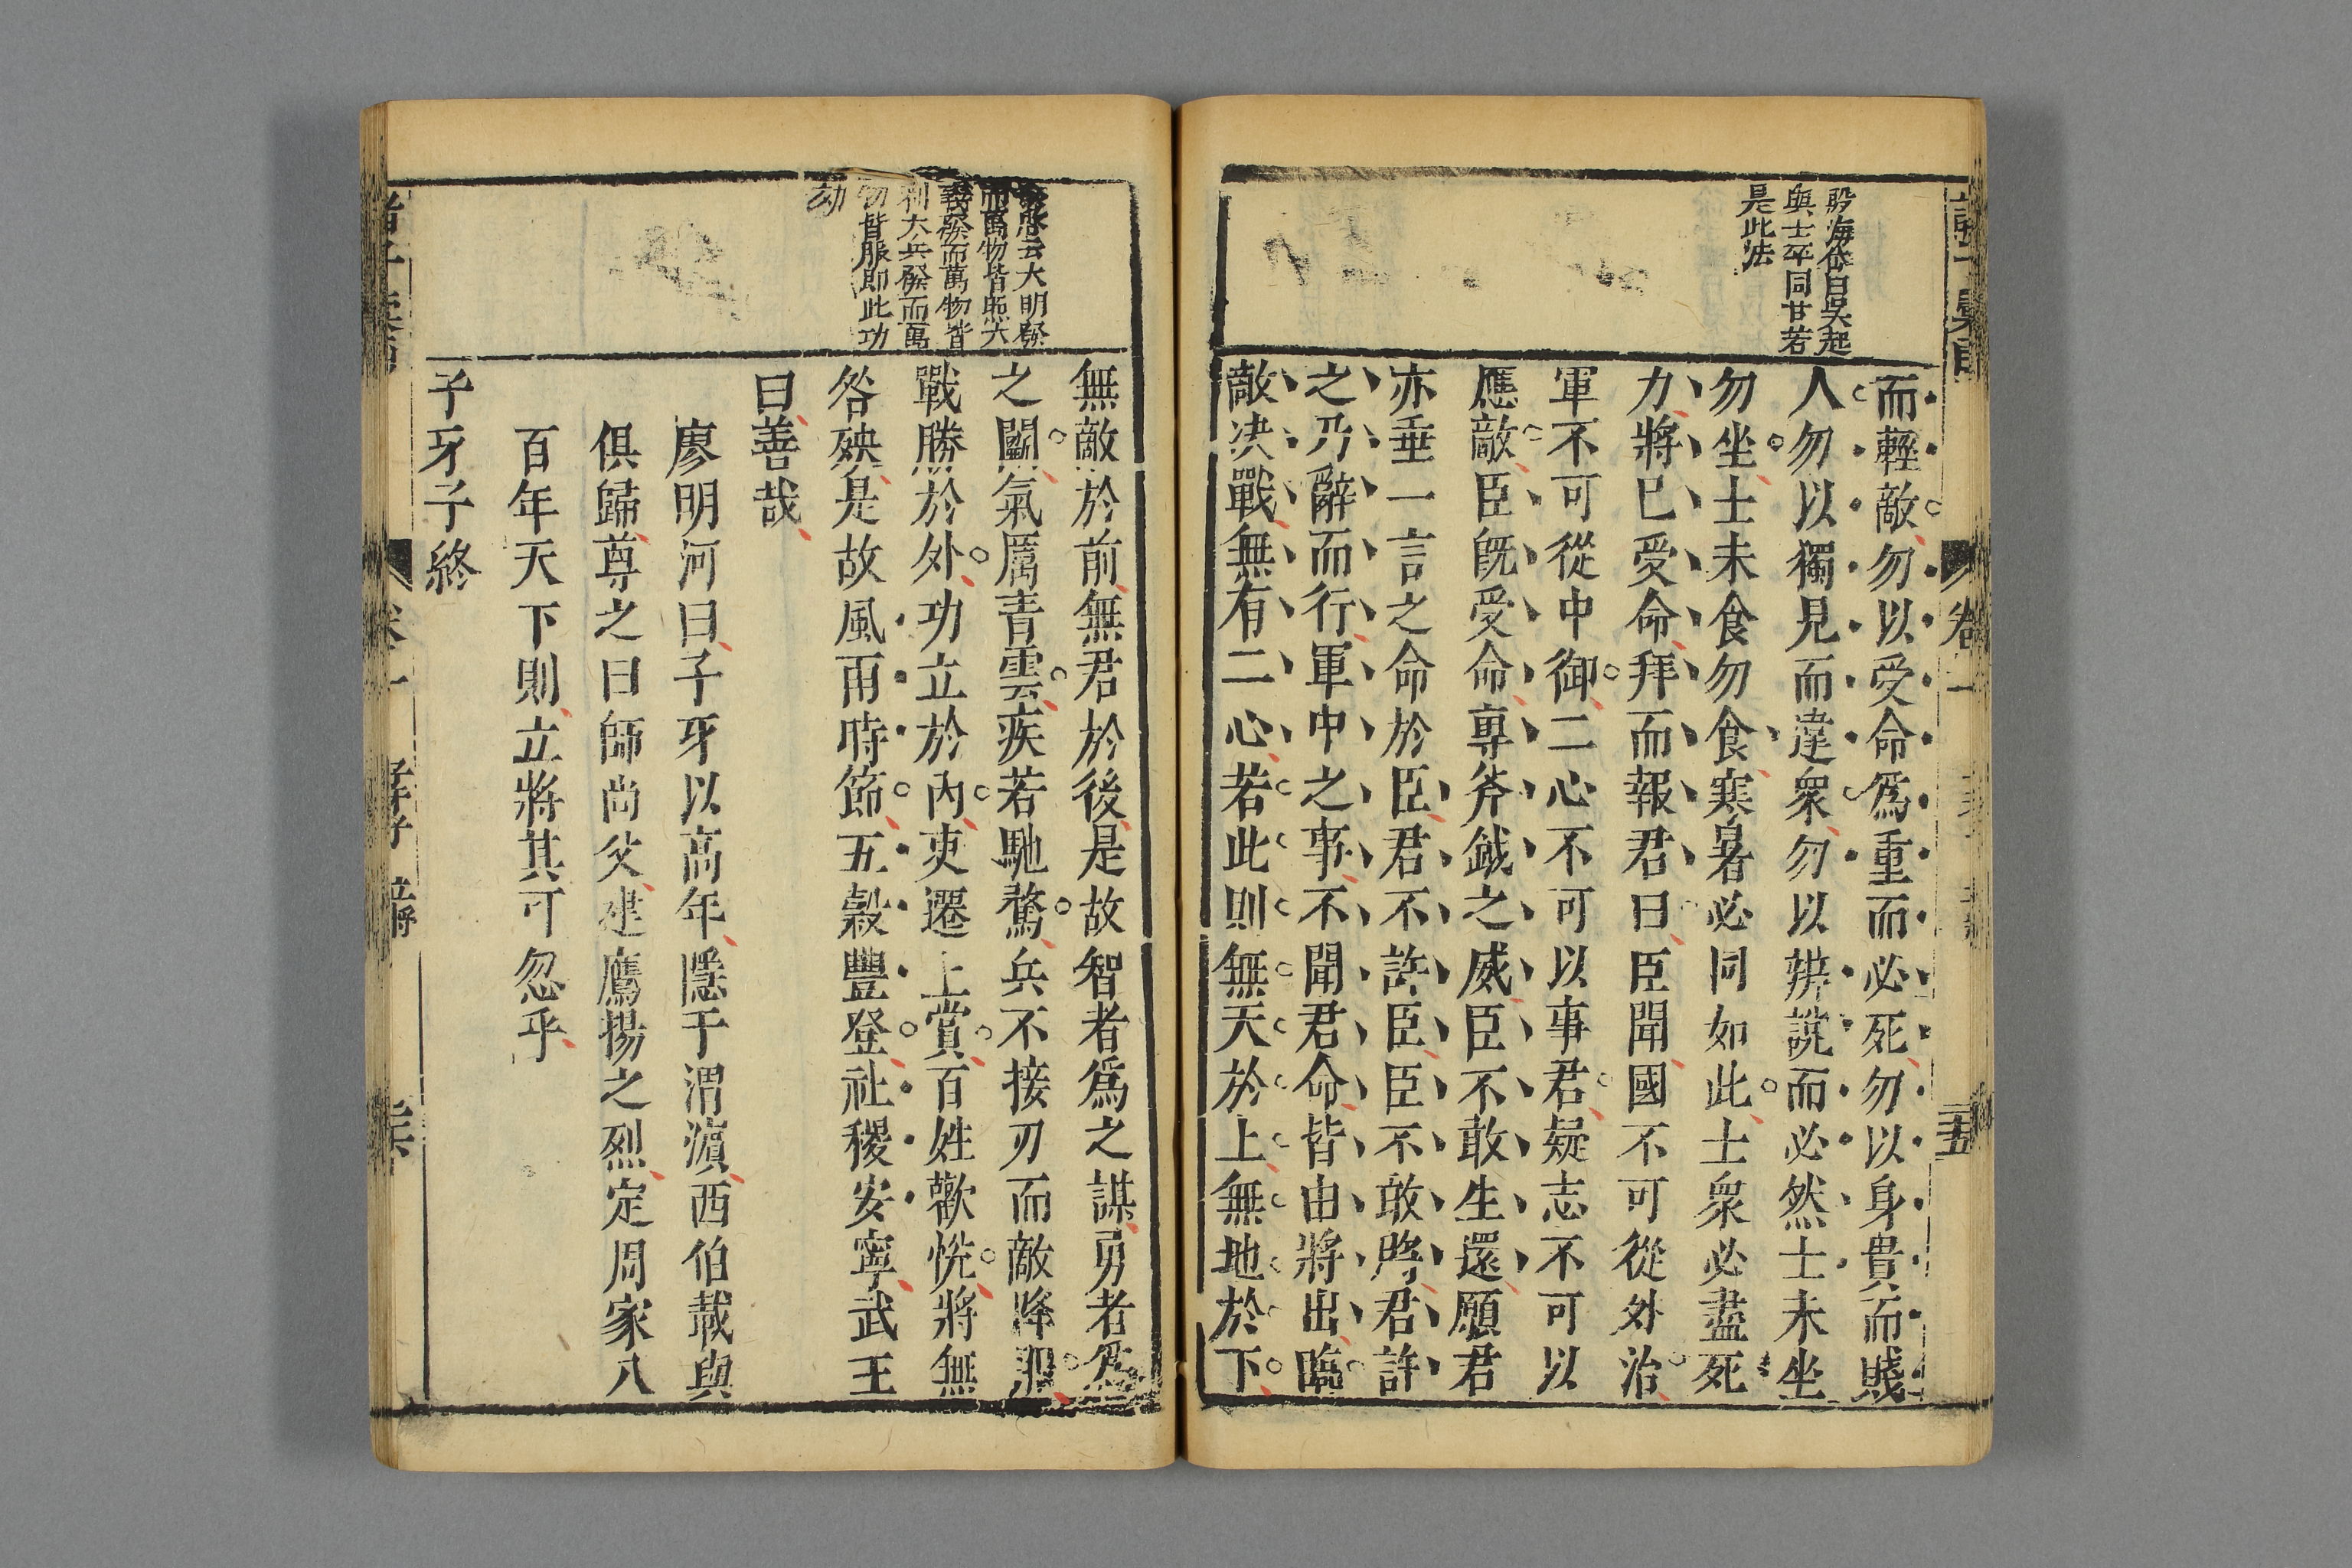 殷海岱曰吳起
與士卒同甘若
是此法
而輕敵勿以受命爲重而必死勿以身貴而賤
人勿以獨見而違衆勿以辨說而必然士未坐
勿坐士未食勿食寒暑必同如此士衆必盡死
力將已受命拜而報君曰臣聞國不可從外治
軍不可從中御二心不可以事君疑志不可以
應敵臣旣受命專斧鉞之威臣不敢生還願君
亦垂一言之命於臣君不許臣臣不敢將君許
之乃辭而行軍中之事不聞君命皆由將出臨
敵决戰無有二心若此則無天於上無地於下
卷一
云大明發
而萬物皆照大
義發而萬物皆
利大兵發而萬
物皆服即此功
効
無敵於前無君於後是故智者爲之謀勇者爲
之鬭氣厲青雲疾若馳騖兵不接刃而敵降服
戰勝於外功立於內吏遷上賞百姓歡悅將無
咎殃是故風雨時節五榖豐登社稷安寧武王
曰善哉
廖明河曰子牙以高年隱于渭濵西伯載與
俱歸尊之曰師尚父建鷹揚之烈定周家八
百年天下則立將其可忽乎
子牙子終